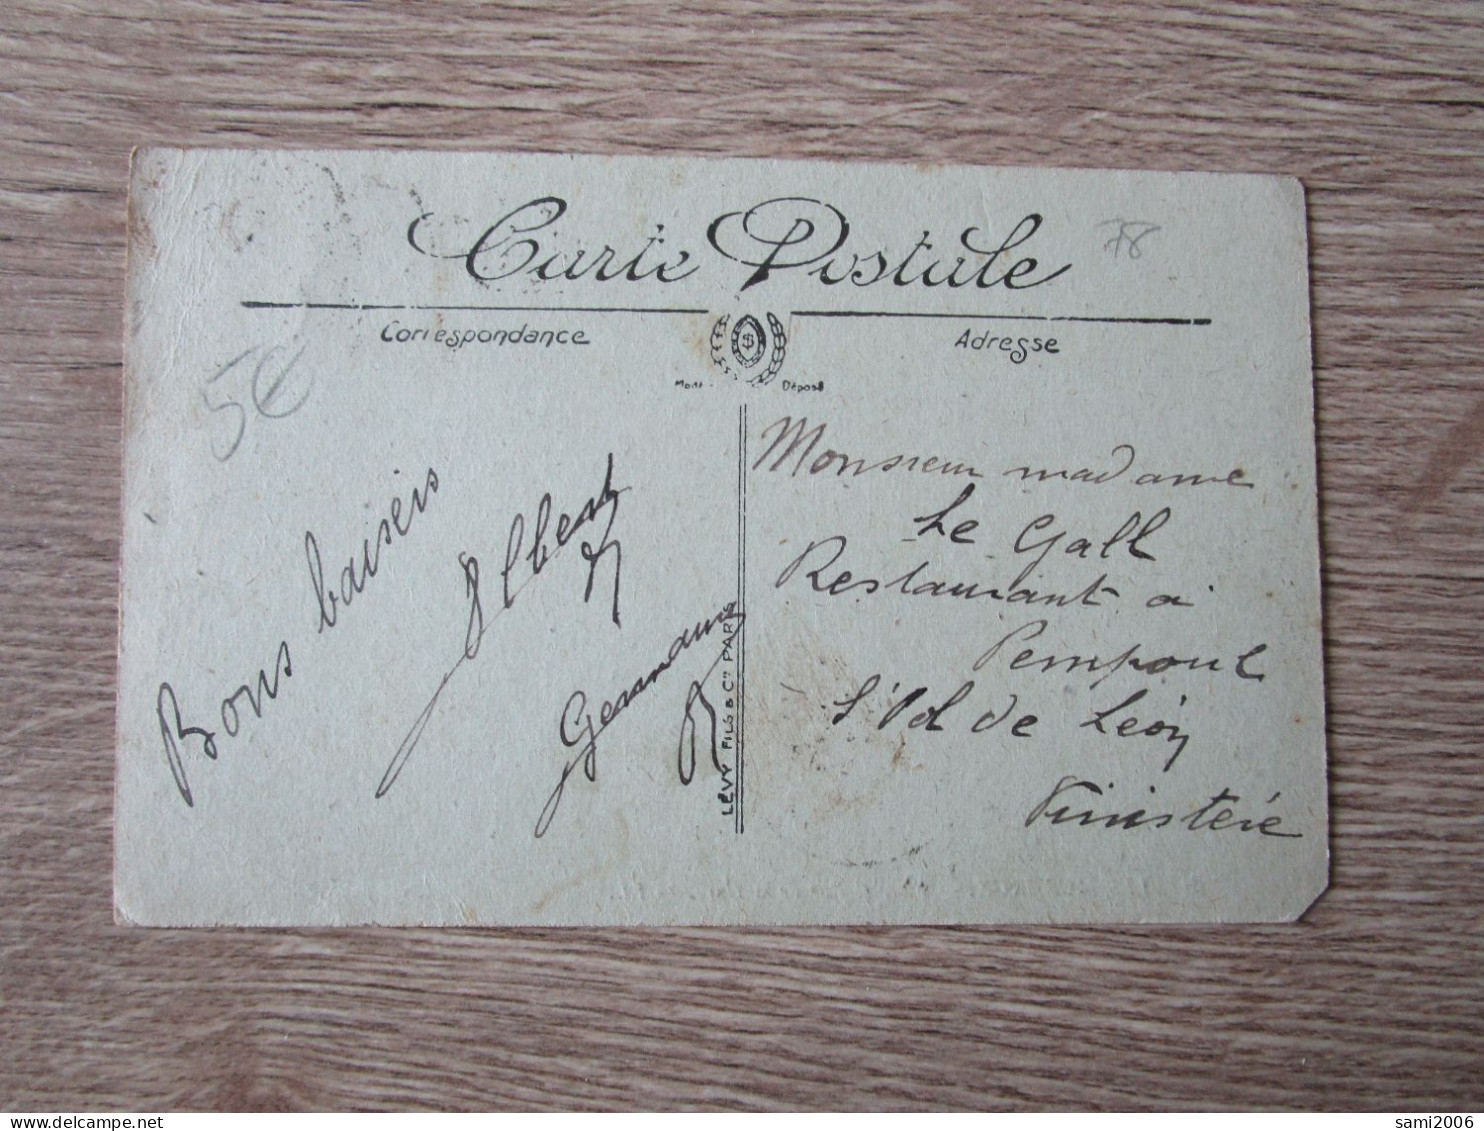 Carte Postale
78
Correspondance
Adresse
5€
Déposé
Bons baisers
Albert
Germaine
LÉVY FILS & Cie PARIS
Monsieur madame
Le Gall
Restaurant à
Pempoul
St Pol de Léon
Finistère
sami2006
delcampe.net